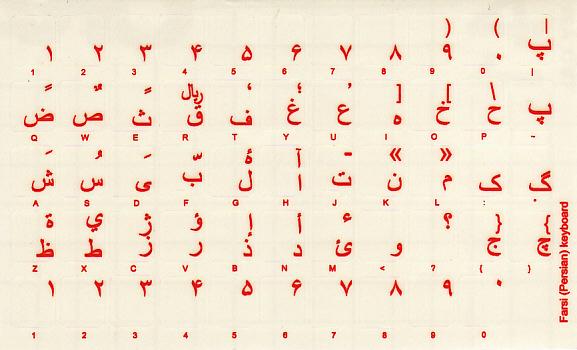 ) ( |
۱ ۲ ۳ ۴ ۵ ۶ ۷ ۸ ۹ ۰ پ
1 2 3 4 5 6 7 8 9 0 |
ً ٌ ٍ ریال ، ؛ ٬ ] [ \
ض ص ث ق ف غ ع ه خ ح پ
Q W E R T Y U I O P ~
َ ُ ِ ّ ۀ آ ـ « »
ش س ی ب ل ا ت ن م ک گ
A S D F G H J K L : "
ة ي ژ ؤ إ أ ء ؟ } {
ظ ط ز ر ذ د ئ و ج چ
Z X C V B N M < ? { }
۱ ۲ ۳ ۴ ۵ ۶ ۷ ۸ ۹ ۰
1 2 3 4 5 6 7 8 9 0
Farsi (Persian) keyboard